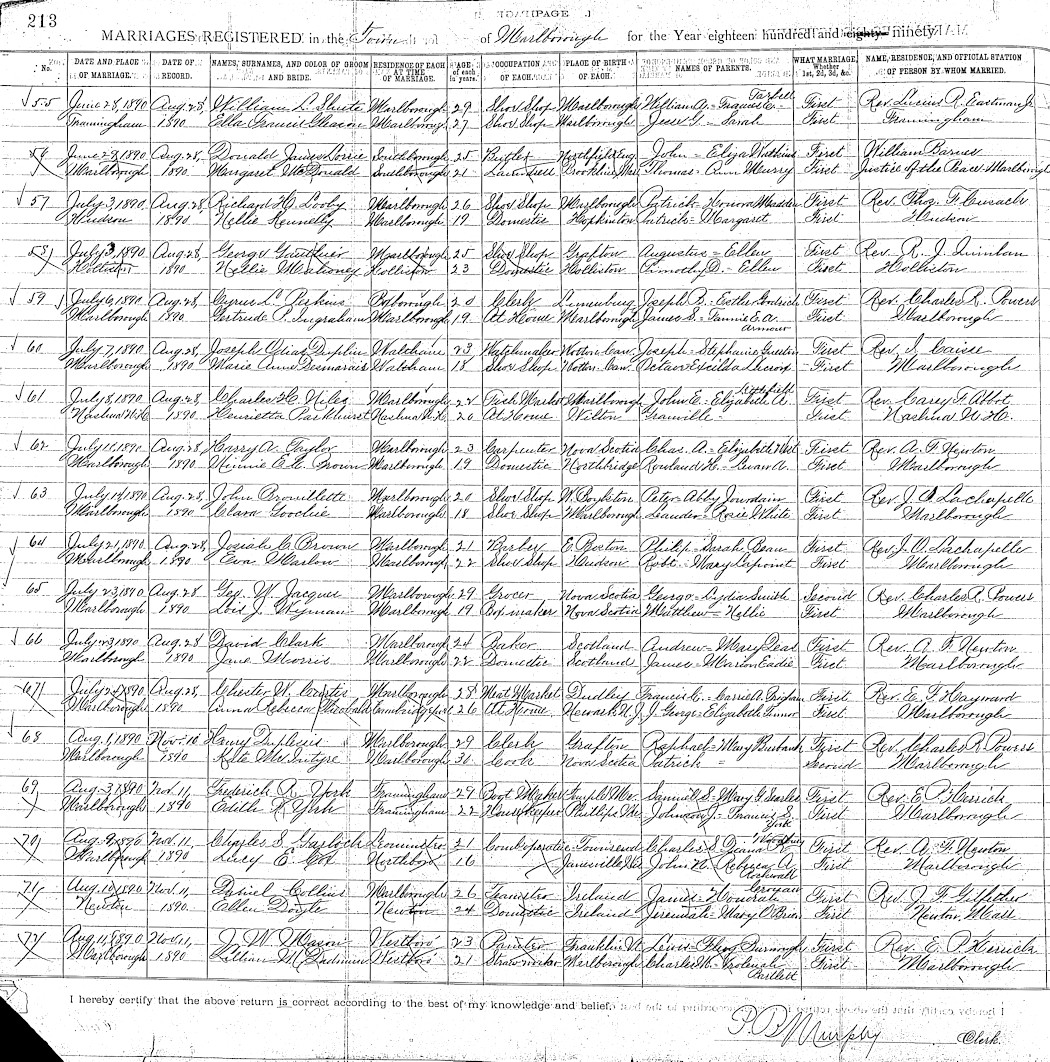 213
MARRIAGES REGISTERED in the Town of Marlborough for the Year eighteen hundred and eighty ninety
No. DATE AND PLACE OF MARRIAGE. DATE OF RECORD. NAMES, SURNAMES, AND COLOR OF GROOM AND BRIDE. RESIDENCE OF EACH AT TIME OF MARRIAGE. AGE of each in years. OCCUPATION OF EACH. PLACE OF BIRTH OF EACH. NAMES OF PARENTS. WHAT MARRIAGE. Whether 1st, 2d, 3d, &c. NAME, RESIDENCE, AND OFFICIAL STATION OF PERSON BY WHOM MARRIED.
55 June 28, 1890 Aug. 28, William L. Shute Marlborough 29 Shoe Shop Marlborough William A. = Frances C. First Rev. Lucius R. Eastman Jr
Framingham 1890 Ella Francis Gleason Marlborough 27 Shoe Shop Marlborough Jesse G. = Sarah First Framingham
56 June 28, 1890 Aug. 28, Donald James Southborough 25 Butler Northfield Eng. John = Eliza Watkins First William Barnes
Marlborough 1890 Margaret McDonald Southborough 21 Laundress Brookline Thomas = Ann Murry First Justice of the Peace Marlborough
57 July 3, 1890 Aug. 28, Richard H. Looby Marlborough 26 Shoe Shop Marlborough Patrick = Honora First Rev. Thos. F. Cusack
Hudson 1890 Nellie Marlborough 19 Domestic Hopkinton Patrick = Margaret First Hudson
58 July 3, 1890 Aug. 28, George Gauthier Marlborough 25 Shoe Shop Grafton Augustus = Ellen First Rev. R. J. Quinlan
Holliston 1890 Nellie Mahoney Holliston 23 Domestic Holliston Timothy D. = Ellen First Holliston
59 July 6, 1890 Aug. 28, Cyrus L. Perkins Boxborough 20 Clerk Lunenburg Joseph B. = Esther Goodrich First Rev. Charles R. Powers
Marlborough 1890 Gertrude P. Ingraham Marlborough 19 At Home Marlborough James S. = Fannie E. A. First Marlborough
Armour
60 July 7, 1890 Aug. 28, Joseph Waltham 23 Watchmaker Wotton Can. Joseph = Stephanie First Rev. J. Caisse
Marlborough 1890 Marie Anne Desmarais Waltham 18 Shoe Shop Wotton Can. Octave = Exilda First Marlborough
61 July 8, 1890 Aug. 28, Charles H. Niles Marlborough 22 Marlborough John E. = Elizabeth A. First Rev. Carey F. Abbot
Nashua N.H. 1890 Henrietta Parkhurst Nashua N.H. 20 At Home Wilton Granville = First Nashua N.H.
62 July 11, 1890 Aug. 28 Harry A. Taylor Marlborough 23 Carpenter Nova Scotia Chas. A. = Elizabeth West First Rev. A. F. Newton
Marlborough 1890 Minnie E. C. Brown Marlborough 19 Domestic Northbridge Rowland H. = Susan A. First Marlborough
63 July 14, 1890 Aug. 28, John Brouillette Marlborough 20 Shoe Shop W. Boylston Peter = Abby Jourdain First Rev. J. O. Lachapelle
Marlborough 1890 Clara Marlborough 18 Shoe Shop Marlborough Leander = Rosie White First Marlborough
64 July 21, 1890 Aug. 28, Josiah C. Brown Marlborough 21 Barber E. Boston Philip = Sarah Bean First Rev. J. O. Lachapelle
Marlborough 1890 Eva Marlow Marlborough 22 Shoe Shop Hudson Robt. = Mary Lapoint First Marlborough
65 July 23, 1890 Aug. 28 Geo. W. Jacques Marlborough 29 Grocer Nova Scotia George = Lydia Smith Second Rev. Charles R. Powers
Marlborough 1890 Lois J. Wyman Marlborough 19 Boxmaker Nova Scotia Matthew = Nellie First Marlborough
66 July 23, 1890 Aug. 28 David Clark Marlborough 24 Baker Scotland Andrew = Mary Deas First Rev. A. F. Newton
Marlborough 1890 Jane Morris Marlborough 22 Domestic Scotland James = Marion Eadie First Marlborough
67 July 24, 1890 Aug. 28, Chester W. Curtis Marlborough 28 Meat Market Dudley Francis C. = Carrie A. Brigham First Rev. E. F. Hayward
Marlborough 1890 Anna Rebecca Cambridgeport 26 At Home Newark N.J. George = Elizabeth First Marlborough
68 Aug. 1, 1890 Nov. 10 Henry Duplessis Marlborough 29 Clerk Grafton Raphael = Mary Burbank First Rev. Charles R. Powers
Marlborough 1890 Kate McIntyre Marlborough 30 Cook Nova Scotia Patrick = Second Marlborough
69 Aug. 3, 1890 Nov. 11, Frederick R. York Framingham 29 Boot Maker Temple Me. Samuel S. = Mary G. Searles First Rev. E. P. Herrick
Marlborough 1890 Edith R. York Framingham 22 Housekeeper Phillips Me. Johnson J. = Francis S. First Marlborough
York
70 Aug. 9, 1890 Nov. 11, Charles S. Garlock Leominster 21 Comb operative Townsend Charles S. First Rev. A. F. Newton
Marlborough 1890 Lucy E. Cox Northboro 16 Janesville Wis John N. = Rebecca A. First Marlborough
Rockwell
71 Aug. 10, 1890 Nov. 11, Daniel Collins Marlborough 26 Teamster Ireland James = Honorah First Rev. J. F. Gilfether
Newton 1890 Ellen Doyle Newton 24 Domestic Ireland Jeremiah = Mary O'Brien First Newton, Mass
72 Aug. 11, 1890 Nov. 11, J. W. Mason Westboro' 23 Painter Franklin Vt Lewis = Burroughs First Rev. E. P. Herrick
Marlborough 1890 Lillian M. Westboro' 21 Straw worker Marlborough Charles W. = First Marlborough
Bartlett
I hereby certify that the above return is correct according to the best of my knowledge and belief.
P. B. Murphy Clerk.